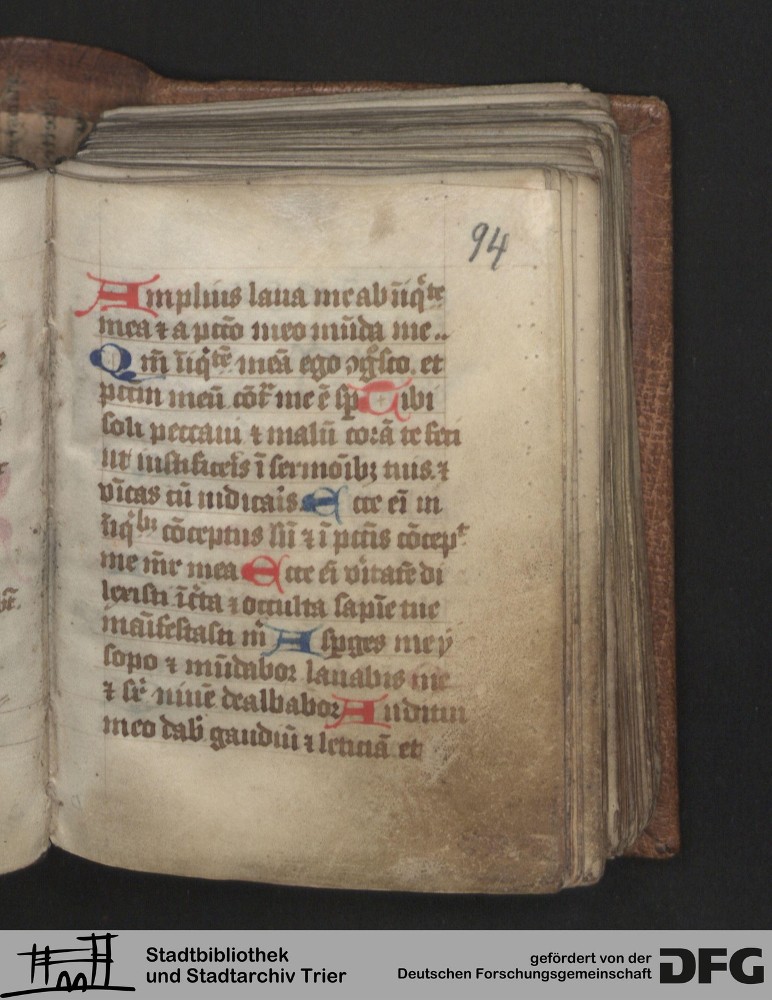 94
Amplius laua me ab īiq̄te
mea ⁊ a pccō meo mūda me..
Qm̄ īiq̄tē meā ego ꝯgsco. et
pccm meū cōt̄ me ē sp Tibi
soli peccaui ⁊ malū corā te feci
ut iustificeris ī sermōibꝫ tuis. ⁊
vīcas cū iudicaris Ecce ei̅ in
īiq̄bꝫ cōceptus su̅ ⁊ ī pctis cōcepᵗ
me mr̄ mea Ecce ei̅ vitatē di
lexisti īcta ⁊ occulta sapīe tue
maīfestasti m̄ Asꝑges me y
sopo ⁊ mūdabor lauabis me
⁊ sr̄ niuē dealbabor Auditui
meo dab̄ gaudiū ⁊ leticiā et
Stadtbibliothek
und Stadtarchiv Trier
gefördert von der
Deutschen Forschungsgemeinschaft
DFG